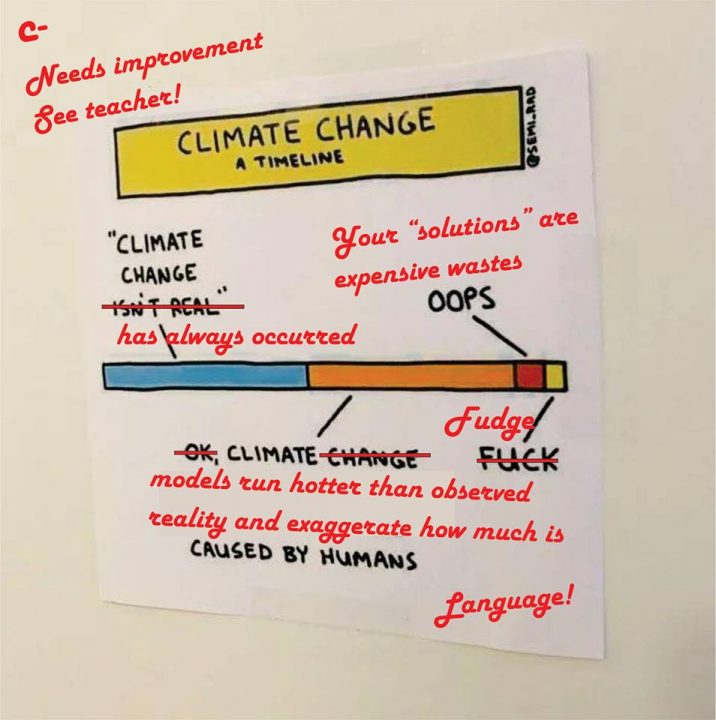 C-
Needs improvement
See teacher!
CLIMATE CHANGE
A TIMELINE
@SEMI_RAD
"CLIMATE
CHANGE
ISN'T REAL"
has always occurred
Your "solutions" are
expensive wastes
OOPS
Fudge
OK, CLIMATE CHANGE
FUCK
models run hotter than observed
reality and exaggerate how much is
CAUSED BY HUMANS
Language!